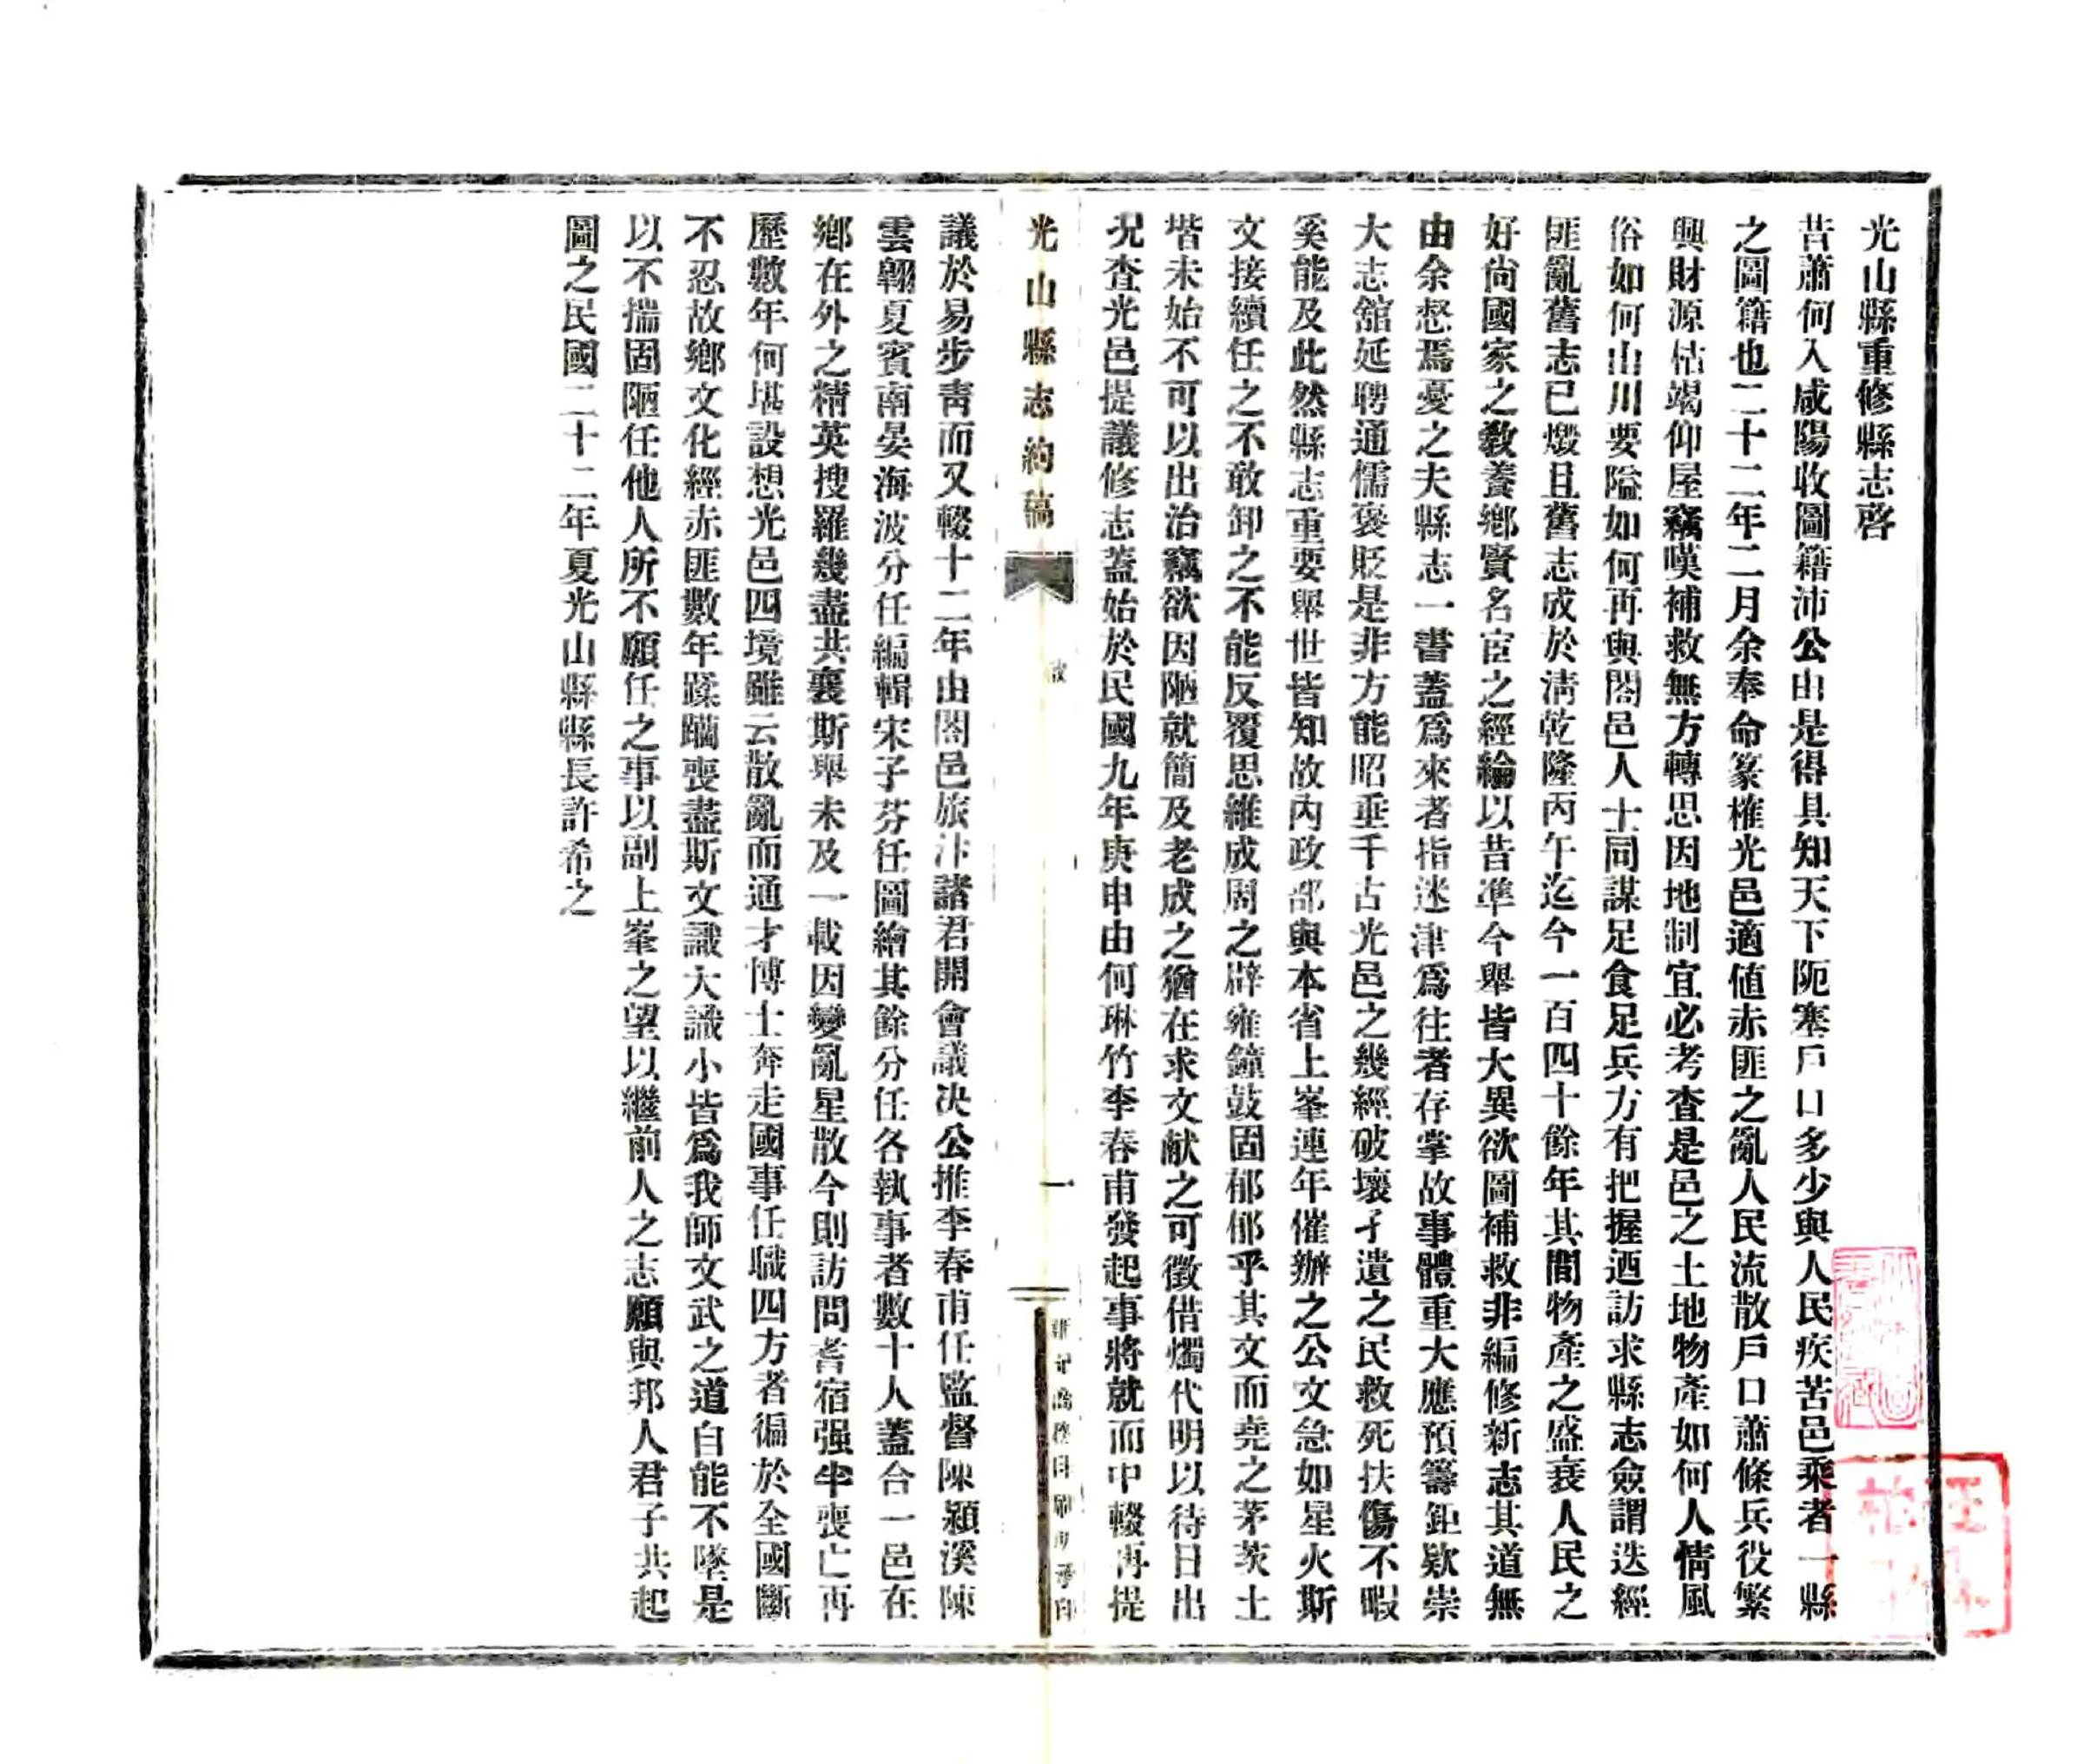 光山縣重修縣志啓
昔蕭何入咸陽收圖籍沛公由是得具知天下阨塞戶口多少與人民疾苦邑乘者一縣
之圖籍也二十二年二月余奉命篆榷光邑適値赤匪之亂人民流散戶口蕭條兵役繁
興財源枯竭仰屋竊嘆補救無方轉思因地制宜必考查是邑之土地物產如何人情風
俗如何山川要隘如何再與闔邑人士同謀足食足兵方有把握迺訪求縣志僉謂迭經
匪亂舊志已燬且舊志成於淸乾隆丙午迄今一百四十餘年其間物產之盛衰人民之
好尙國家之敎養鄉賢名宦之經綸以昔準今舉皆大異欲圖補救非編修新志其道無
由余惄焉憂之夫縣志一書蓋爲來者指迷津爲往者存掌故事體重大應預籌鉅欵崇
大志舘延聘通儒褒貶是非方能昭垂千古光邑之幾經破壞孑遺之民救死扶傷不暇
奚能及此然縣志重要舉世皆知故內政部與本省上峯連年催辦之公文急如星火斯
文接續任之不敢卸之不能反覆思維成周之辟雍鐘鼓固郁郁乎其文而堯之茅茨土
堦未始不可以出治竊欲因陋就簡及老成之猶在求文献之可徵借燭代明以待日出
况査光邑提議修志蓋始於民國九年庚申由何琳竹李春甫發起事將就而中輟再提
光山縣志約稿
一
議於易步靑而又輟十二年由闔邑旅汴諸君開會議決公推李春甫任監督陳潁溪陳
雲翶夏賓南晏海波分任編輯宋子芬任圖繪其餘分任各執事者數十人蓋合一邑在
鄉在外之精英搜羅幾盡共襄斯舉未及一載因變亂星散今則訪問耆宿强半喪亡再
歷數年何堪設想光邑四境雖云散亂而通才博士奔走國事任職四方者徧於全國斷
不忍故鄉文化經赤匪數年蹂躪喪盡斯文識大識小皆爲我師文武之道自能不墜是
以不揣固陋任他人所不願任之事以副上峯之望以繼前人之志願與邦人君子共起
圖之民國二十二年夏光山縣縣長許希之